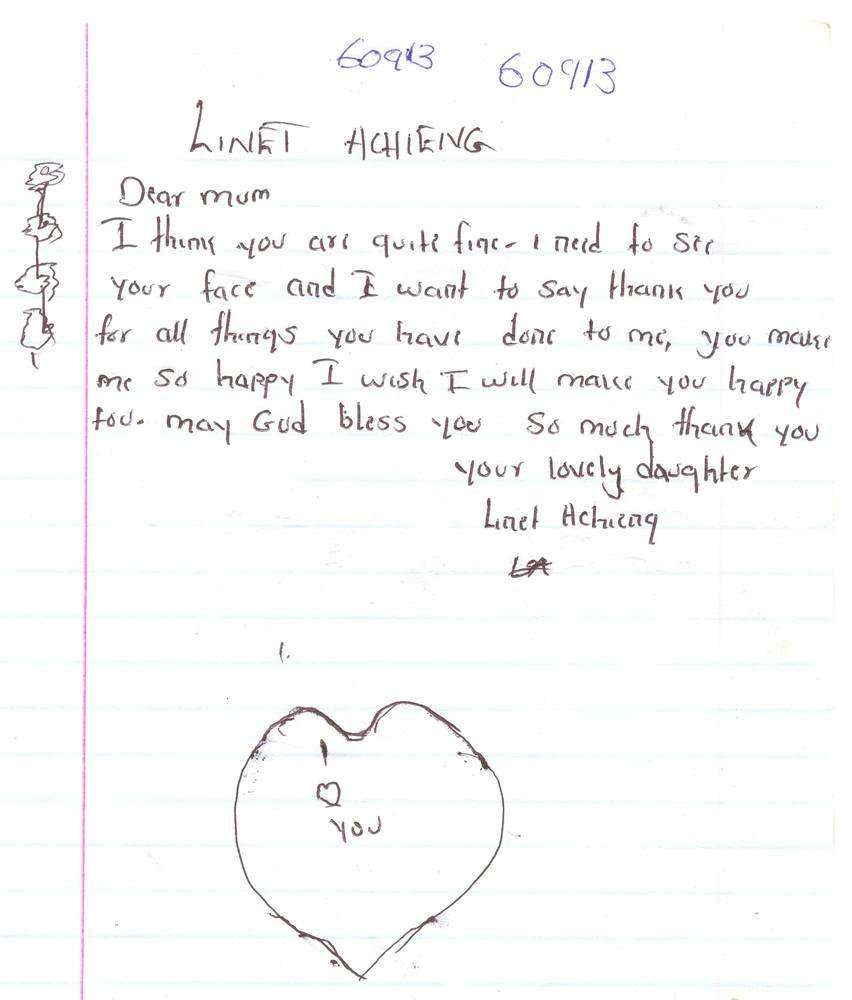 60913 60913
LINET ACHIENG
Dear mum
I think you are quite fine- I need to see
your face and I want to say thank you
for all things you have done to me, you make
me so happy I wish I will make you happy
too. may God bless you so much thank you
your lovely daughter
Linet Achieng
LA
1.
I
♡
you